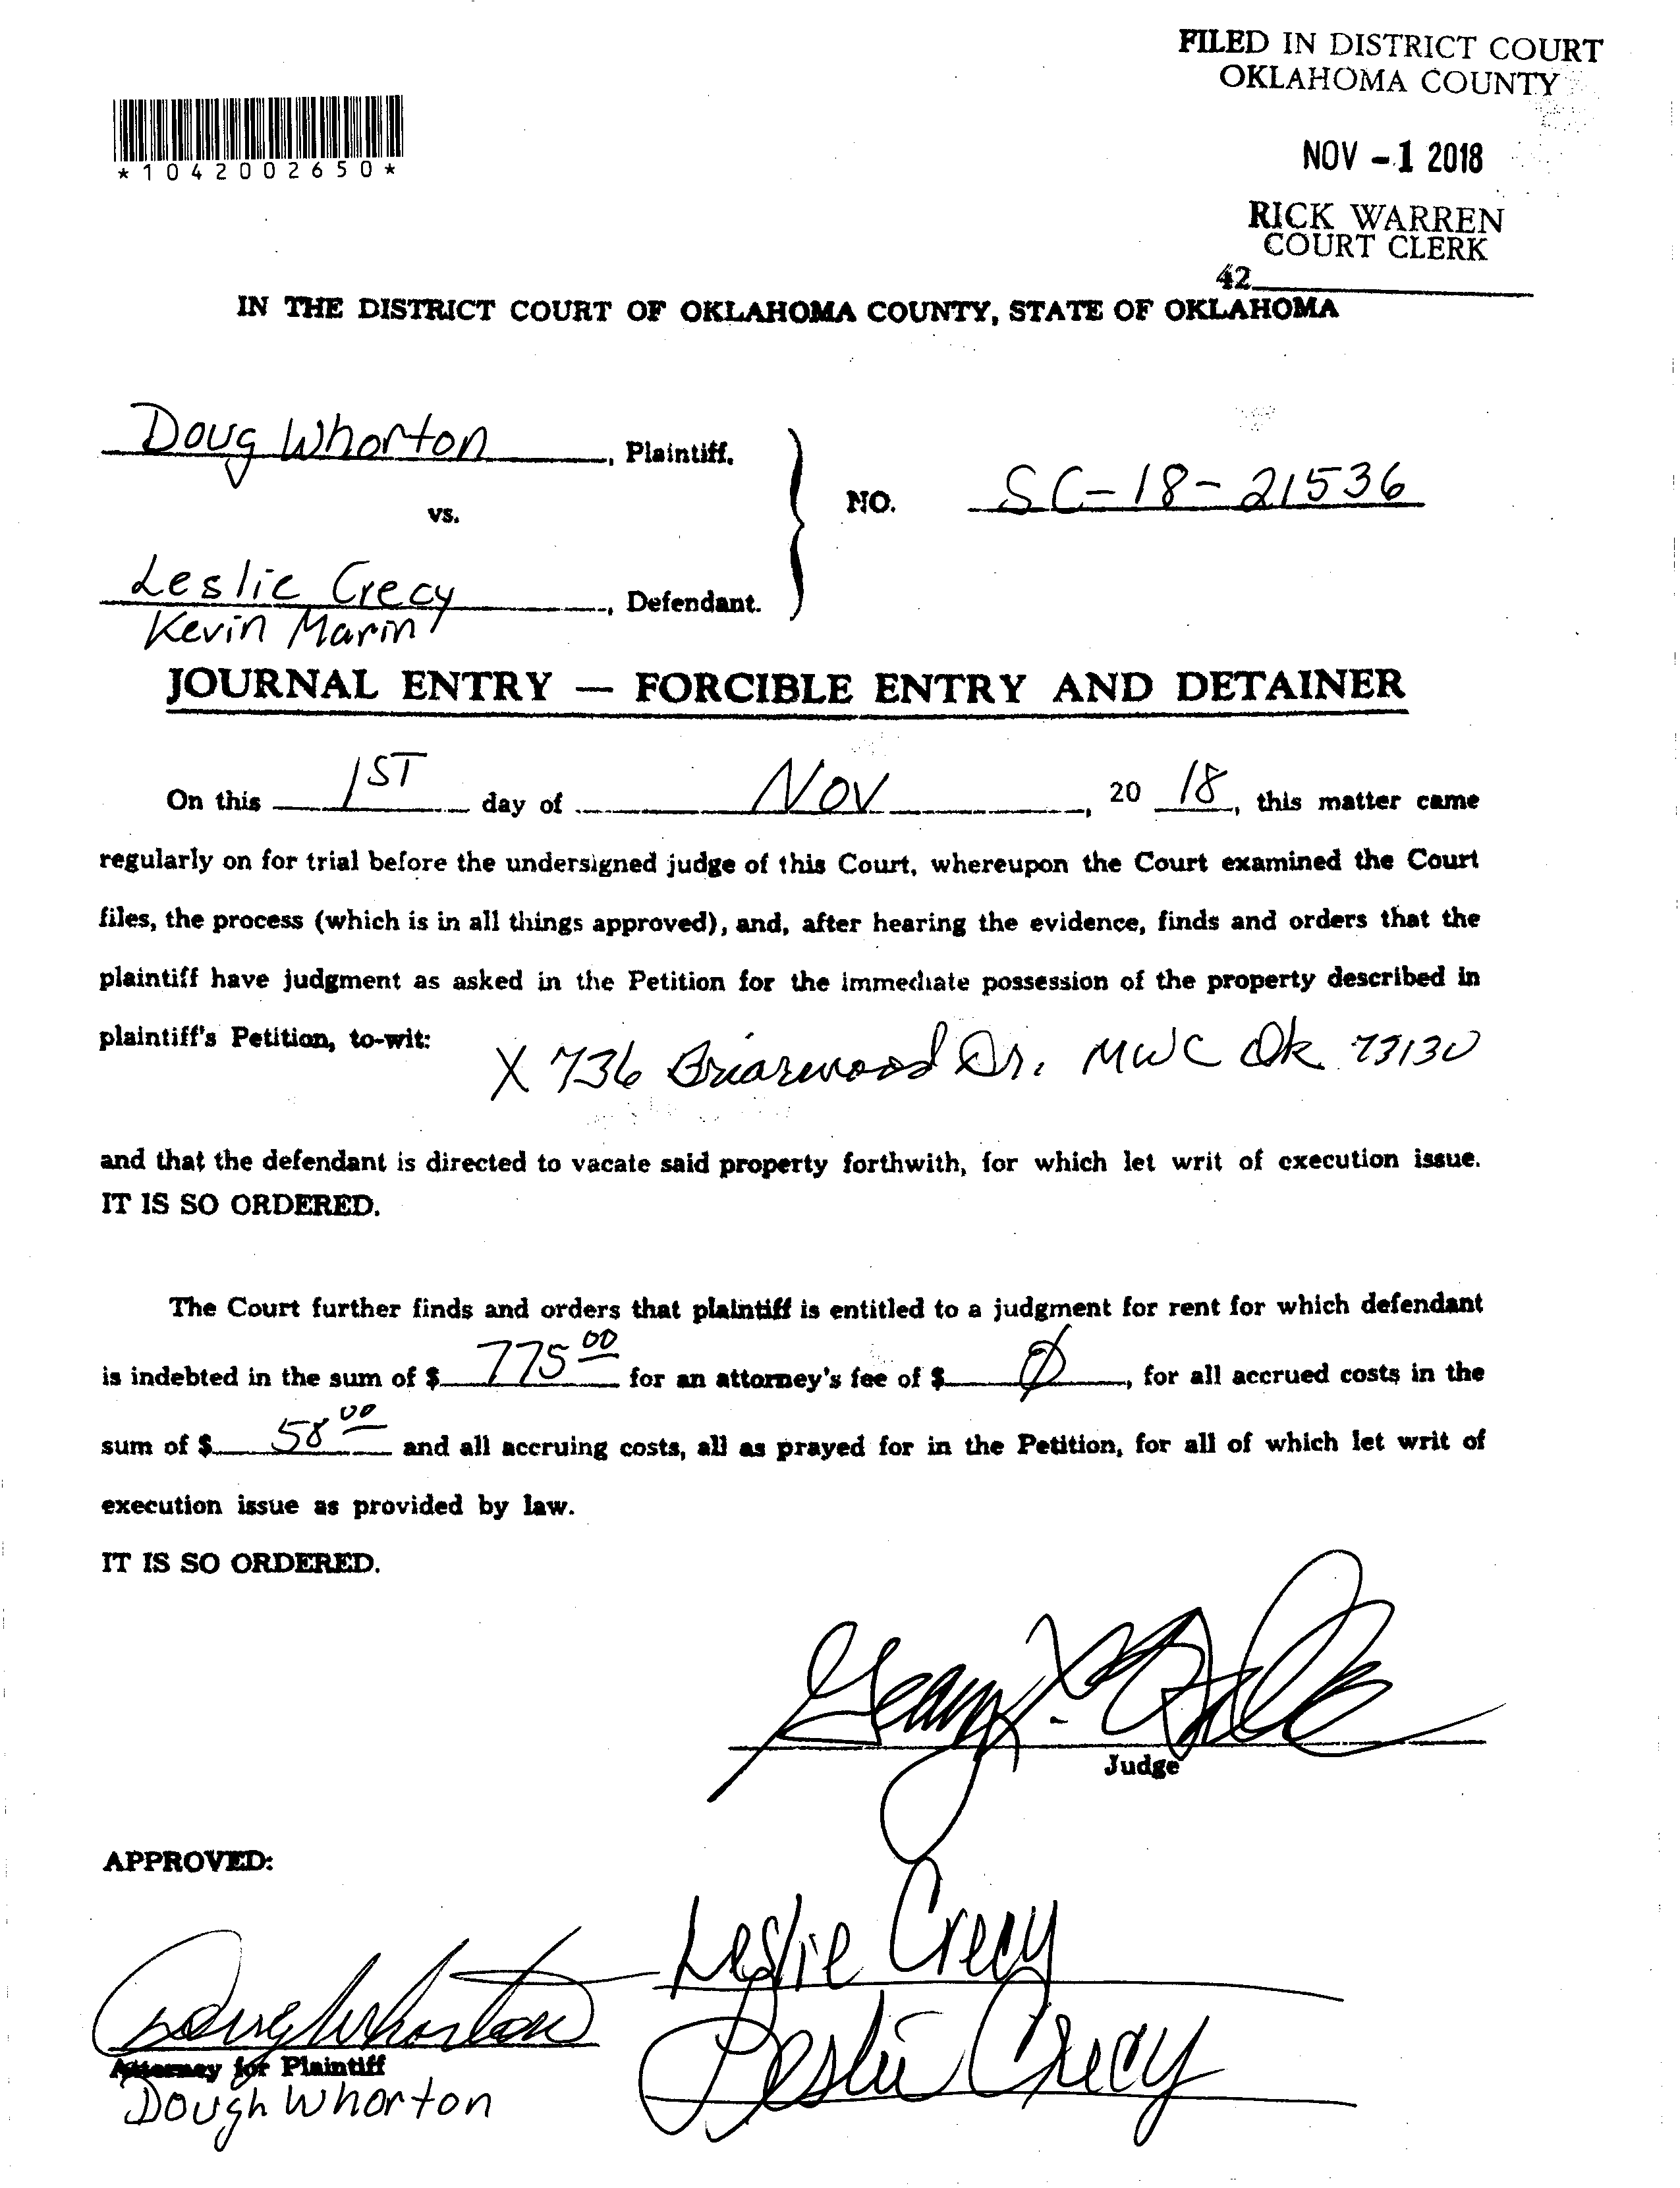 FILED IN DISTRICT COURT
OKLAHOMA COUNTY
*1042002650*
NOV -1 2018
RICK WARREN
COURT CLERK
42
IN THE DISTRICT COURT OF OKLAHOMA COUNTY, STATE OF OKLAHOMA
Doug Whorton, Plaintiff,
vs.
NO. SC-18-21536
Leslie Crecy, Defendant.
Kevin Marin
JOURNAL ENTRY — FORCIBLE ENTRY AND DETAINER
On this 1ST day of NOV, 20 18, this matter came
regularly on for trial before the undersigned judge of this Court, whereupon the Court examined the Court
files, the process (which is in all things approved), and, after hearing the evidence, finds and orders that the
plaintiff have judgment as asked in the Petition for the immediate possession of the property described in
plaintiff's Petition, to-wit:
X 736 Briarwood Dr. MWC Ok 73130
and that the defendant is directed to vacate said property forthwith, for which let writ of execution issue.
IT IS SO ORDERED.
The Court further finds and orders that plaintiff is entitled to a judgment for rent for which defendant
is indebted in the sum of $ 775 00 for an attorney's fee of $ Ø, for all accrued costs in the
sum of $ 58 00 and all accruing costs, all as prayed for in the Petition, for all of which let writ of
execution issue as provided by law.
IT IS SO ORDERED.
Judge
APPROVED:
Leslie Crecy
Doug Whorton
Leslie Crecy
Attorney for Plaintiff
Dough Whorton